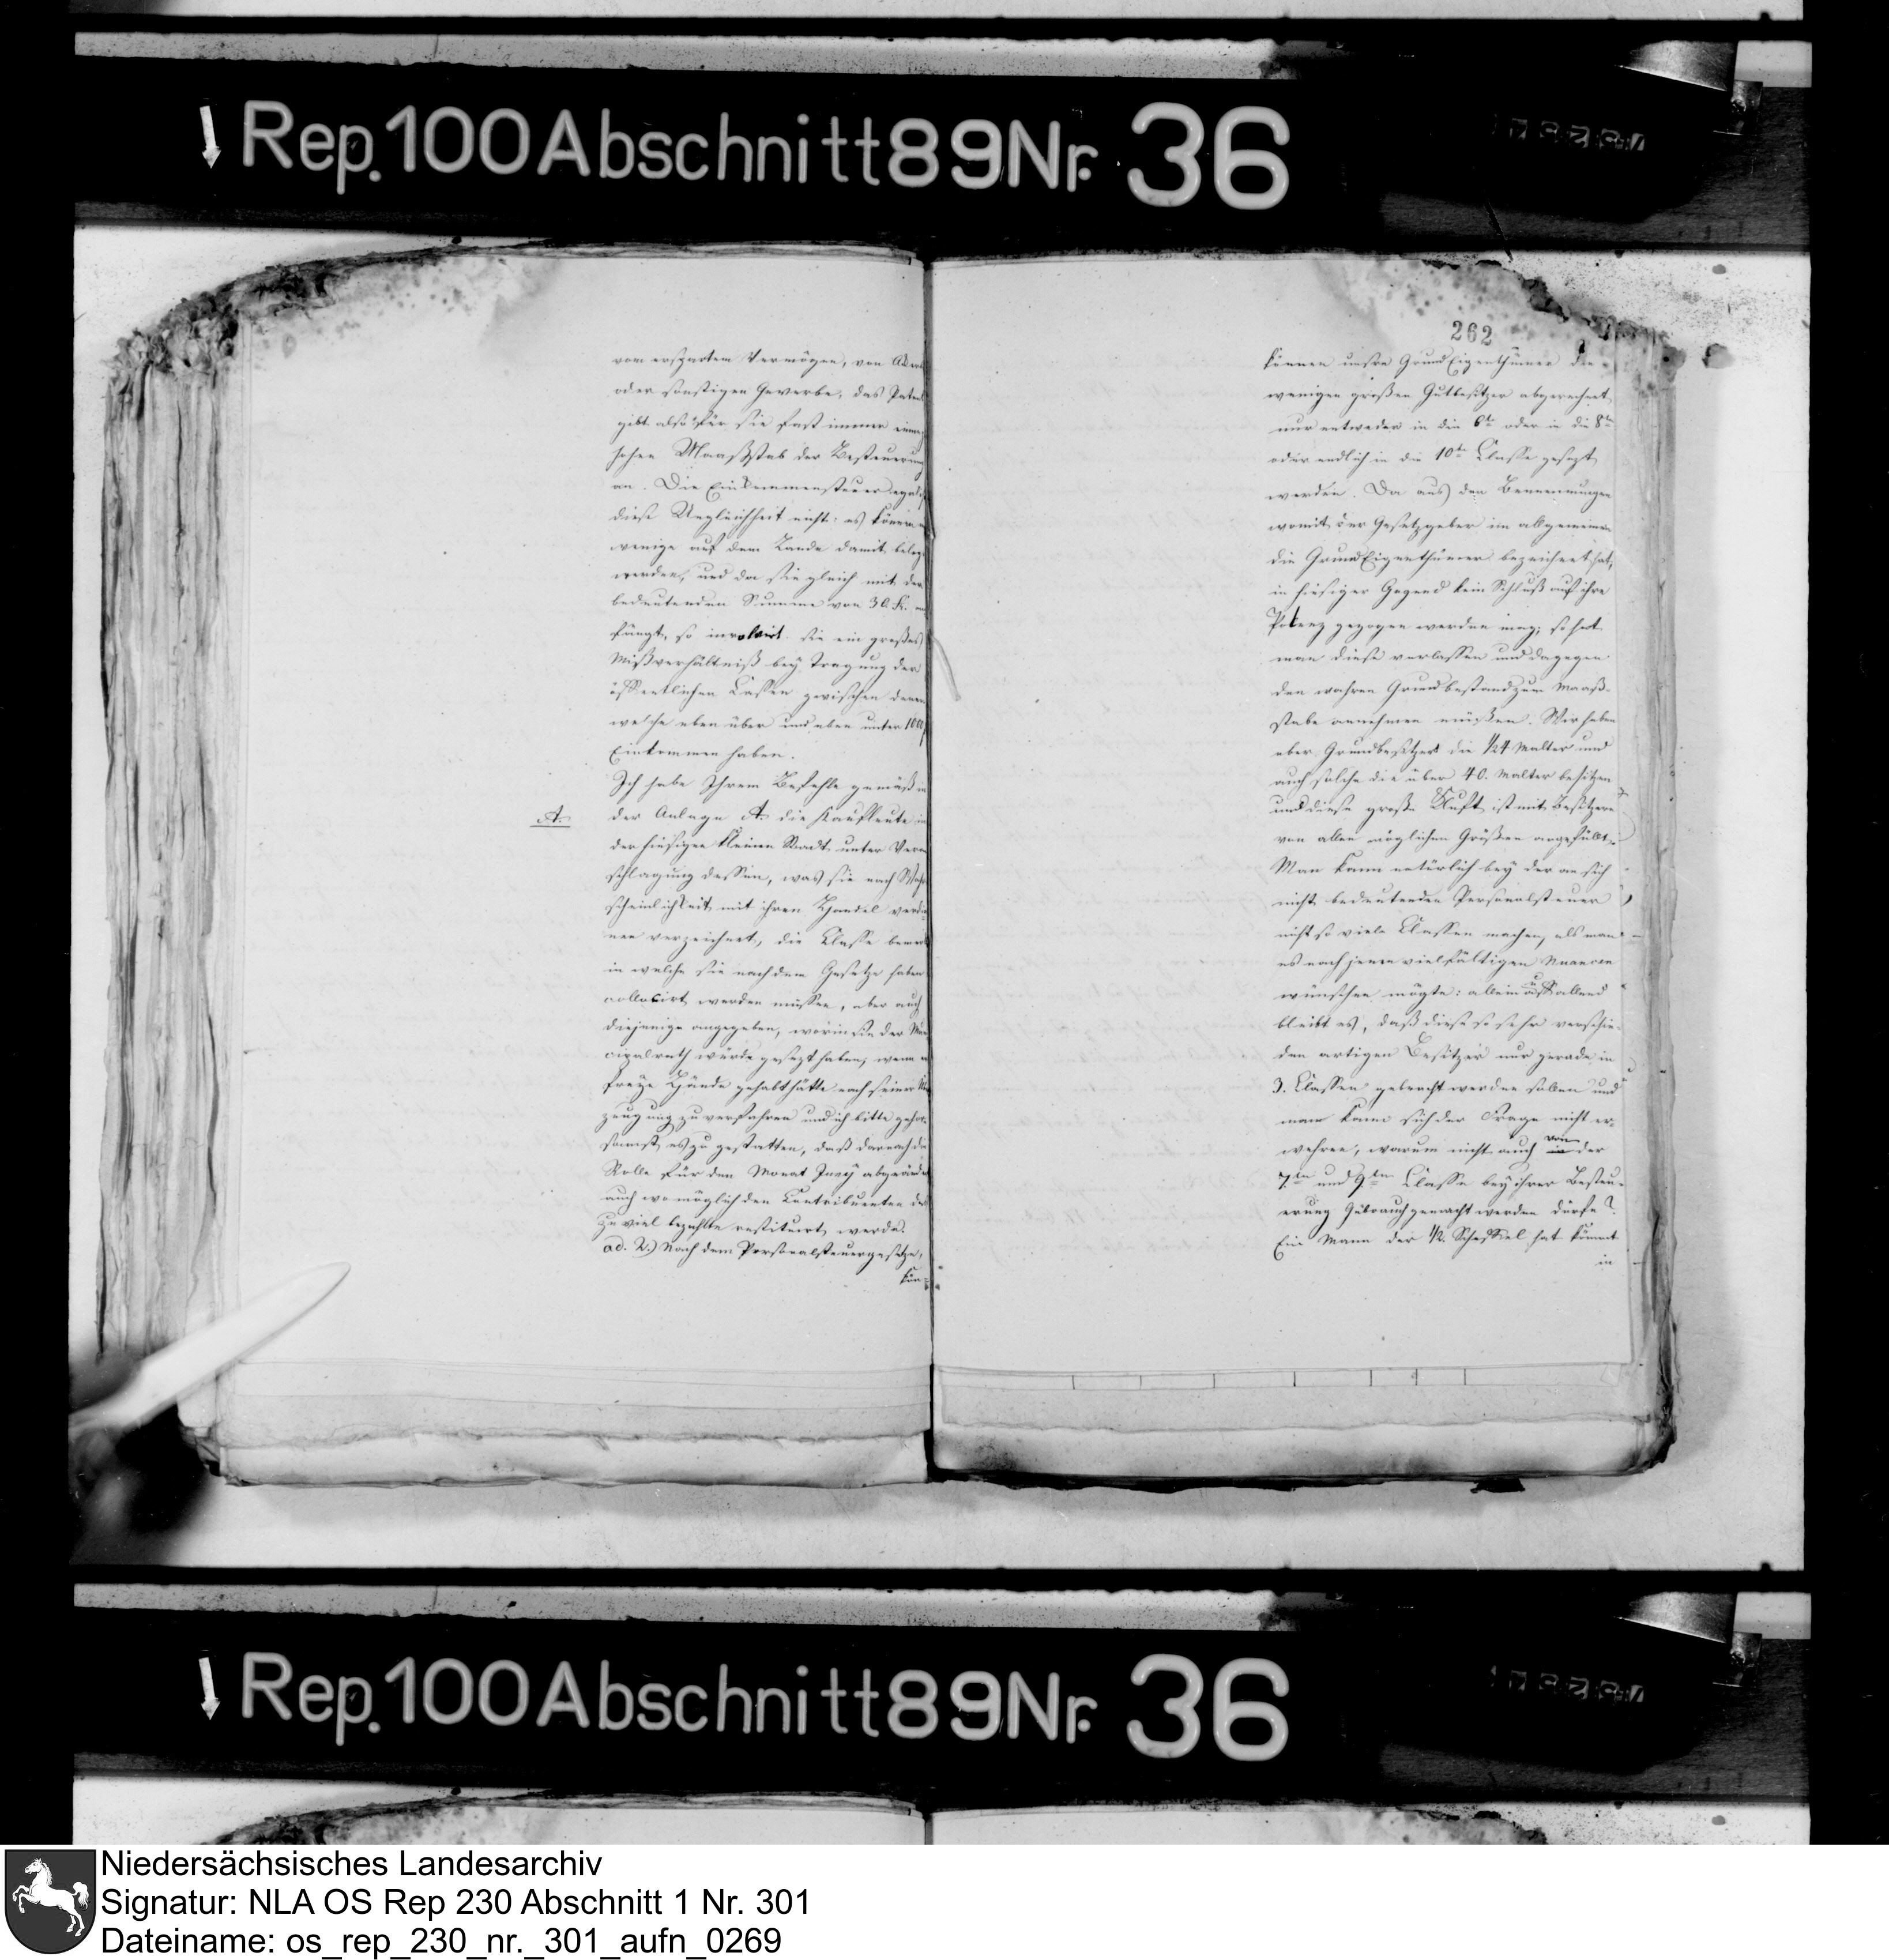 Rep. 100 Abschnitt 89 Nr. 36
vom ersparten Vermögen, von Acker
oder sonstigen Gewerbe, das Patent
gibt also für sie fast immer einen
hohen Maaßstab der Besteurung
an. Die Einkommensteuer
diese Ungleichheit nicht: es können
wenige auf dem Lande damit beleg
werden, und da sie gleich mit der
bedeutenden Summe von 30. Fr. an
fängt, so involvirt sie ein großes
Mißverhältniß bey Tragung der
öffentlichen Lasten zwischen denen
welche eben über und eben unter
Einkommen haben.
Ich habe Ihrem Befehle gemäß in
A.
der Anlage A. die Kaufleute in
der hiesigen kleinen Stadt unter Veran
schlagung dessen, was sie nach Wahr
scheinlichkeit mit ihren Handel verdie
nen verzeichnet, die Classe bemerkt
in welche sie nach dem Gesetze haben
collocirt werden müssen, aber auch
diejenige angegeben, worin sie der Mu
cipalrath würde gesezt haben, wenn e
freye Hände gehabt hätte nach seiner
zeugung zu verfahren und ich bitte gehor
samst es zu gestatten, daß darnach die
Rolle für den Monat abgeändert
auch womöglich den Contribuenten das
zu viel bezahlte restituirt werde.
ad. 2.) Nach dem Personalsteuergesetze,
kön-
262
können unsre GrundEigenthümer die
wenigen großen Gutbesitzer abgerechnet
nur entweder in die 6te oder in die 8te
oder endlich in die 10te Classe gesezt
werden. Da aus den Benennungen
womit der Gesetzgeber im allgemeinen
die GrundEigenthümer bezeichnet hat,
in hiesiger Gegend kein Schluß auf ihre
Potenz gezogen werden mag; so hat
man diese verlassen und dagegen
den wahren Grundbestand zum Maaß-
stabe annehmen müssen. Wir haben
aber Grundbesitzer die 1/24 Malter und
auch solche die über 40. Malter besitzen
und diese große Kluft ist mit Besitzern
von allen möglichen Größen angefüllt.
Man kann natürlich bey der an sich
nicht bedeutenden Personalsteuer
nicht so viele Classen machen, als man
es nach jenen vielfältigen Nuancen
wünschen mögte: allein auffallend
bleibt es, daß diese so sehr verschie-
den artigen Besitzer nur gerade in
3. Classen gebracht werden sollen und
man kann sich der Frage nicht er-
wehren, warum nicht auch von der
7ten und 9ten Classe bey ihrer Besteu-
erung Gebrauch gemacht werden dürfe?
Ein Mann der 1/2. Scheffel hat kömmt
in
Rep. 100 Abschnitt 89 Nr. 36
Niedersächsisches Landesarchiv
Signatur: NLA OS Rep 230 Abschnitt 1 Nr. 301
Dateiname: os_rep_230_nr._301_aufn_0269